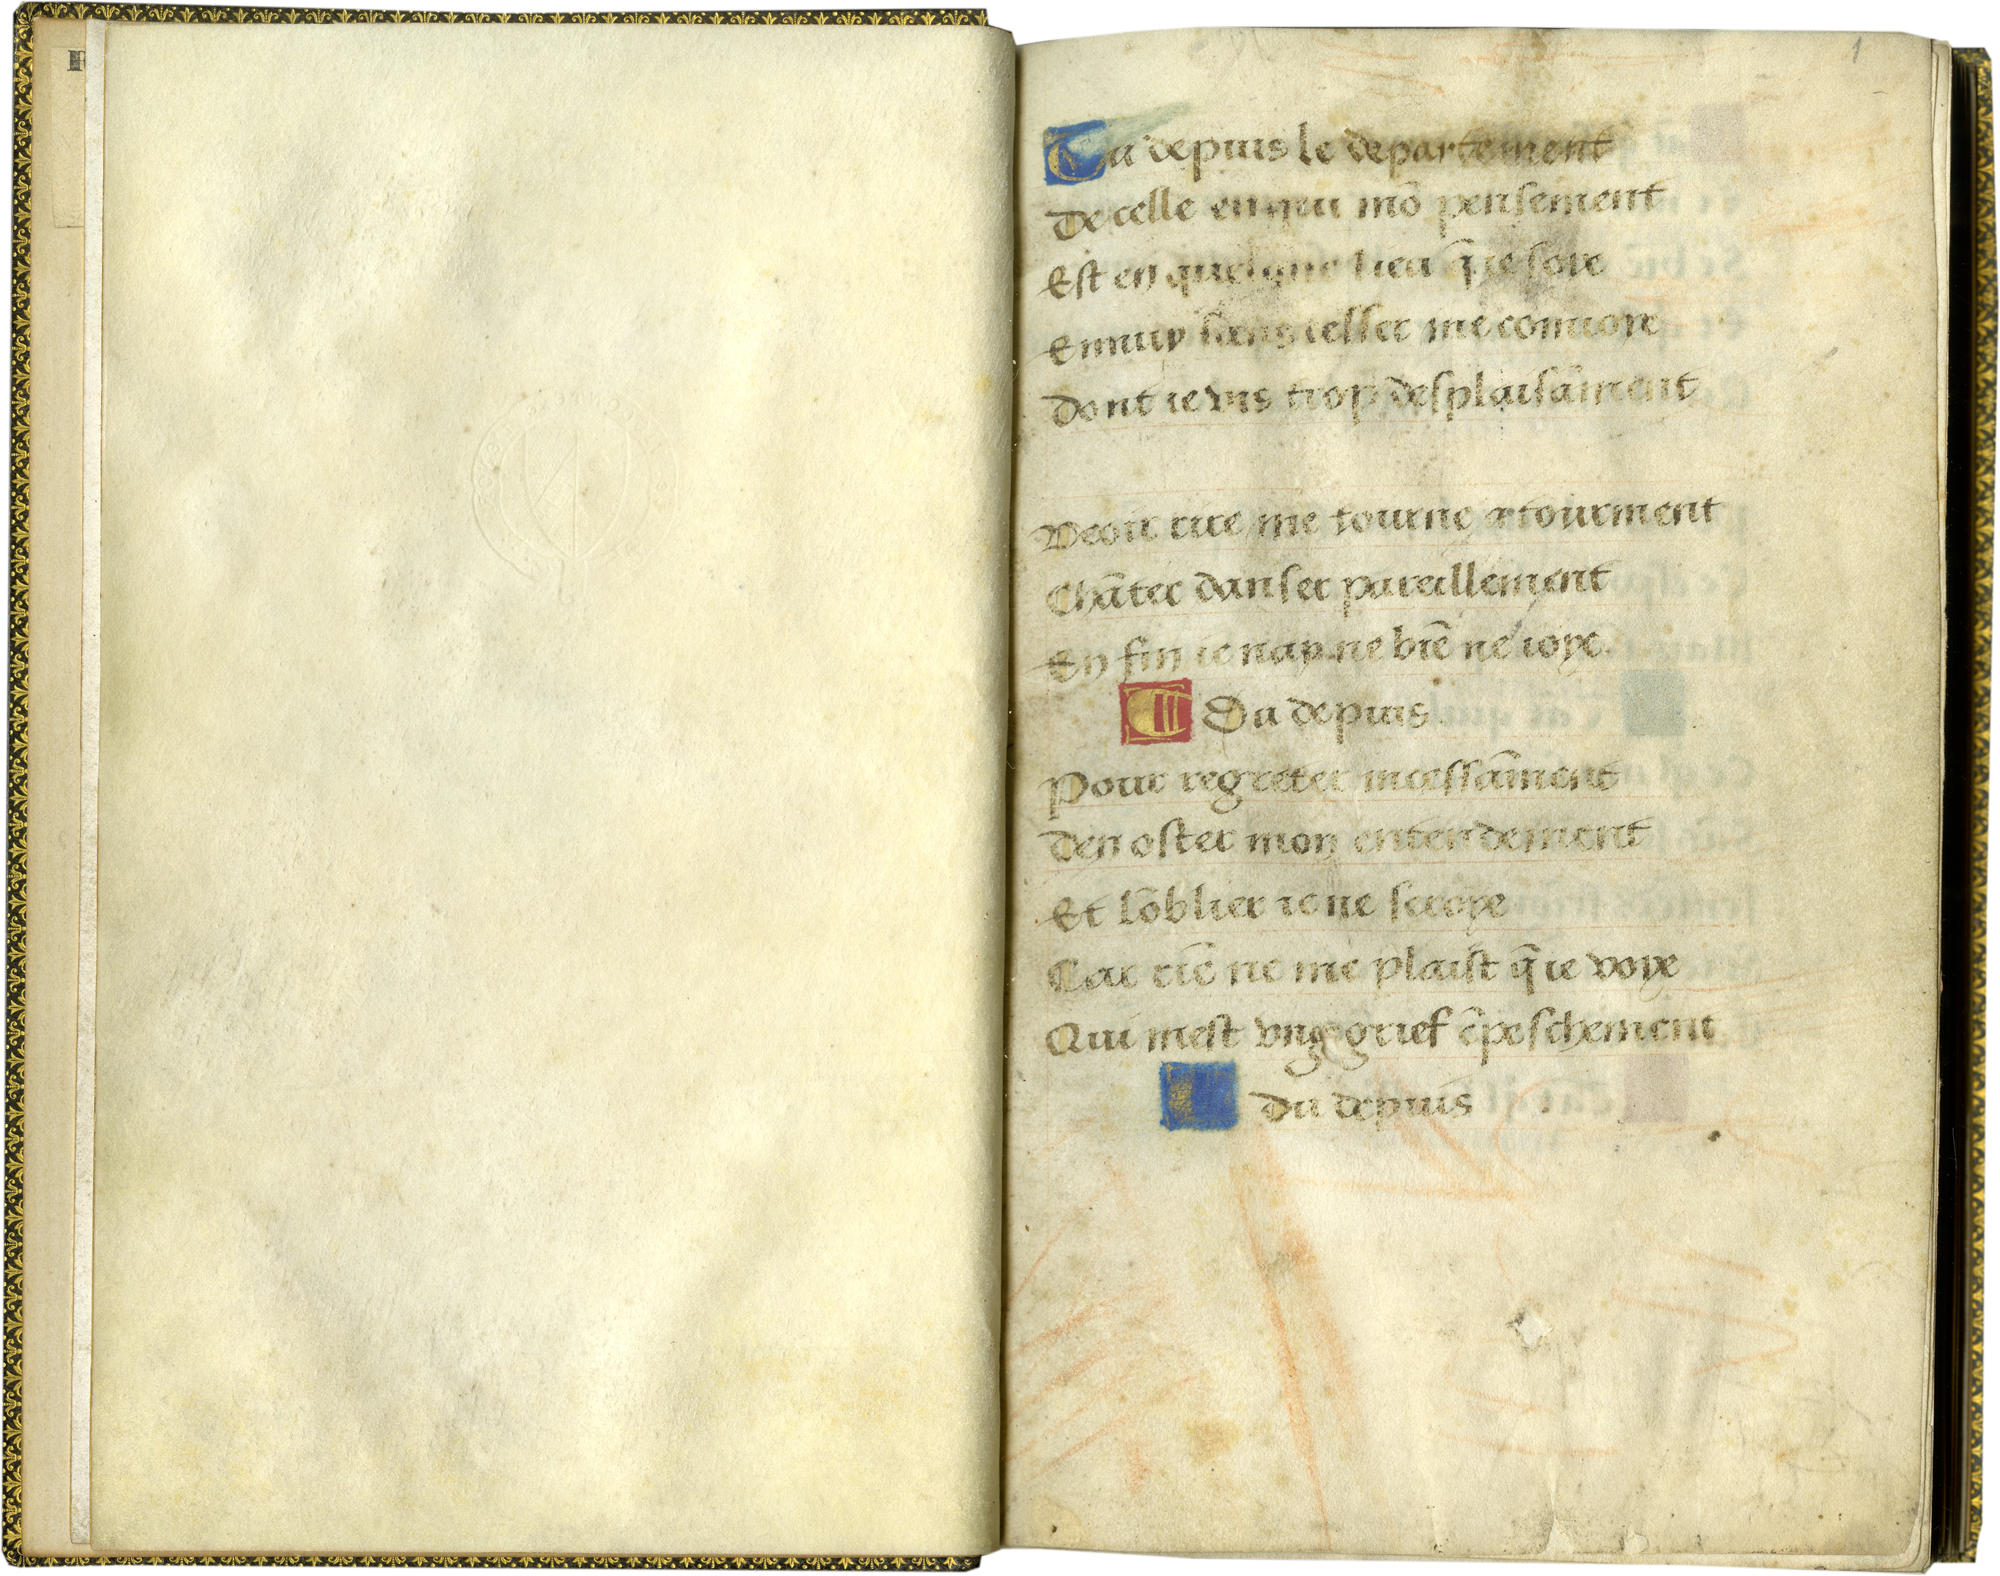 F
1
Da depuis le departement
De celle en qui mō pensement
Est en quelque lieu q̄ ie soye
Ennuy sans cesser me conuoye
Dont ie vis trop desplaisāment
Veoir rire me tourne a tourment
Chāter danser pareillement
En fin ie nay ne biē ne ioye
Da depuis
Pour regreter incessāment
Den oster mon entendement
Et lōblier ie ne scroye
Car riē ne me plaist q̄ ie voye
Qui mest vng grief ēpeschement
Da depuis